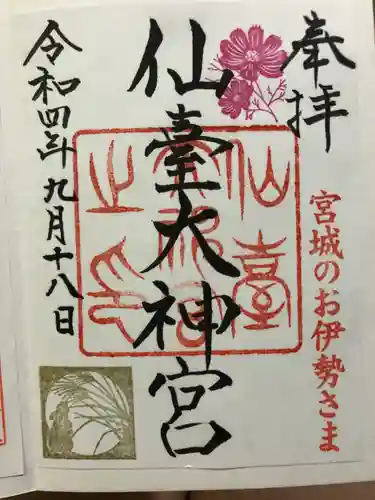 奉拝
宮城のお伊勢さま
仙臺大神宮
令和四年九月十八日